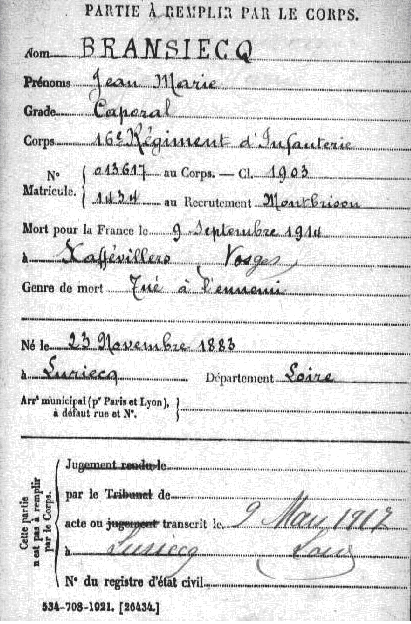 PARTIE À REMPLIR PAR LE CORPS.
Nom BRANSIECQ
Prénoms Jean Marie
Grade Caporal
Corps 16e Régiment d'Infanterie
N° Matricule. { 013617 au Corps. — Cl. 1903
1434 au Recrutement Montbrison
Mort pour la France le 9 Septembre 1914
à Xaffévillers Vosges
Genre de mort Tué à l'ennemi
Né le 23 Novembre 1883
à Luriecq Département Loire
Arrt municipal (pr Paris et Lyon), à défaut rue et N°. }
Cette partie n'est pas à remplir par le Corps.
Jugement rendu le
par le Tribunal de
acte ou jugement transcrit le 9 Mars 1917
à Luriecq Loire
N° du registre d'état civil
534-708-1921. [26434.]